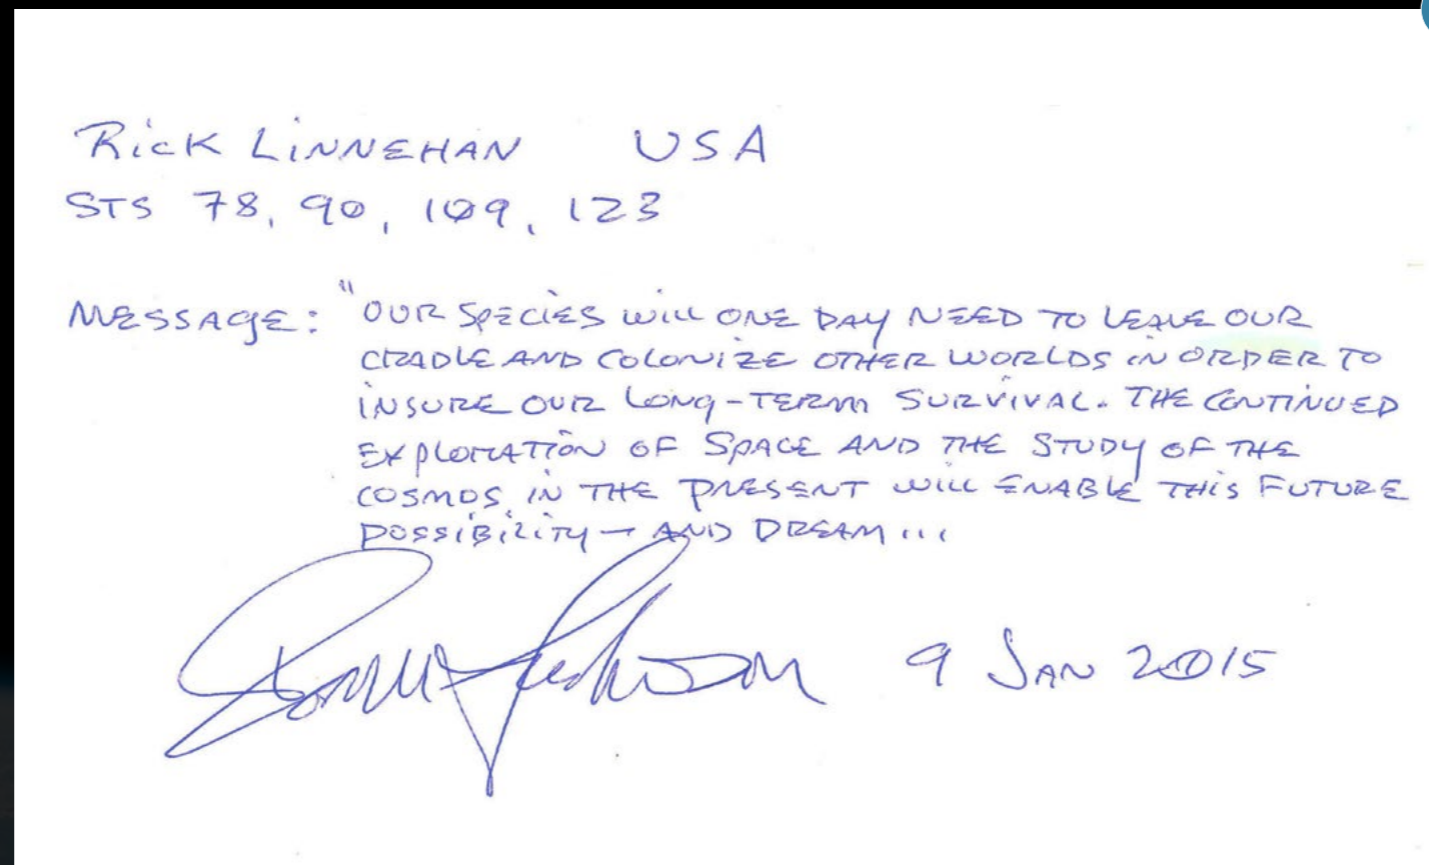 RICK LINNEHAN USA
STS 78, 90, 109, 123
MESSAGE: "OUR SPECIES WILL ONE DAY NEED TO LEAVE OUR
CRADLE AND COLONIZE OTHER WORLDS IN ORDER TO
INSURE OUR LONG-TERM SURVIVAL. THE CONTINUED
EXPLORATION OF SPACE AND THE STUDY OF THE
COSMOS IN THE PRESENT WILL ENABLE THIS FUTURE
POSSIBILITY - AND DREAM...
9 JAN 2015